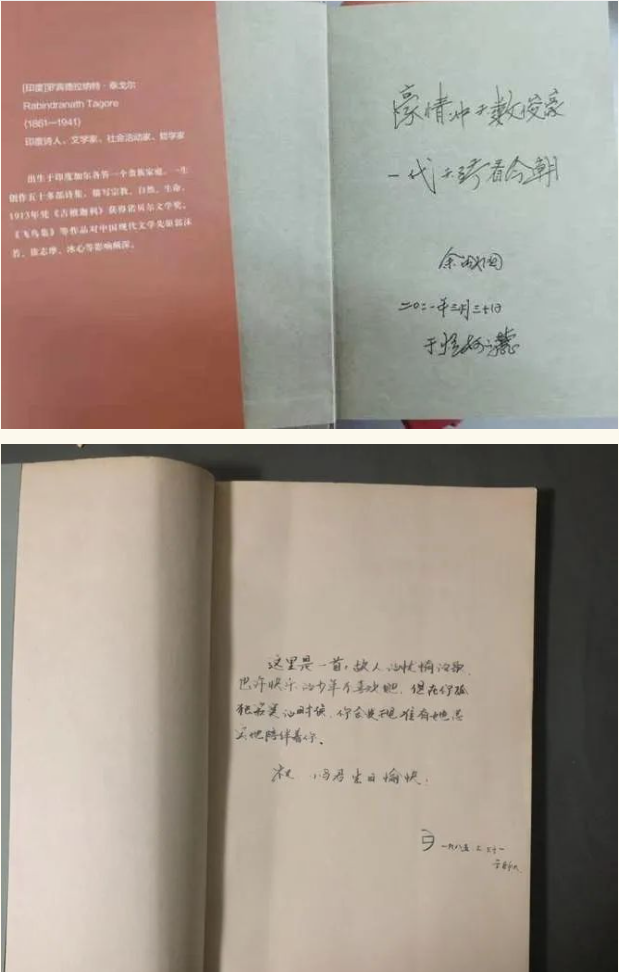 [印度]罗宾德拉纳特·泰戈尔
Rabindranath Tagore
(1861—1941)
印度诗人、文学家、社会活动家、哲学家
出生于印度加尔各答一个贵族家庭。一生
创作五十多部诗集，描写宗教、自然、生命。
1913年凭《吉檀迦利》获得诺贝尔文学奖。
《飞鸟集》等作品对中国现代文学先驱郭沫
若、徐志摩、冰心等影响颇深。
豪情冲天数俊豪
一代天骄看今朝
余
二〇二一年三月三十日
于
这里是一首，故人的忧愉的歌，
也许快乐的少年不喜欢她，但在你孤
独寂寞的时候，你会发现唯有她忠
实地陪伴着你。
祝 冯丹生日愉快！
一九八五.二.二十一